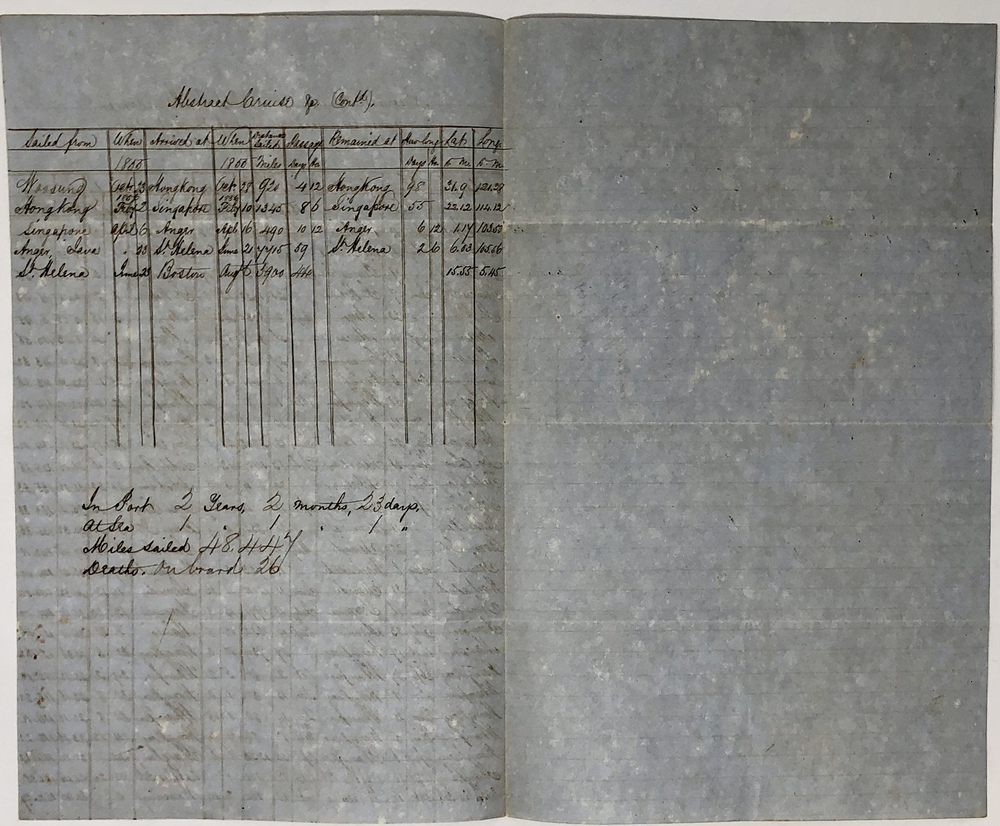 Abstract Cruise &c. (Contd.)
Sailed from When Arrived at When Distance Sailed Passage Remained at How long Lat Long
1855 1855 Miles Days Hrs Days Hrs D. M. D. M.
Woosung Oct. 23 Hongkong Oct. 28 920 4 12 Hongkong 98 31.9 121.29
Hongkong 1856 Feby 2 Singapore 1856 Feby 10 1345 8 6 Singapore 55 22.12 114.12
Singapore April 6 Anger Apl 16 490 10 12 Anger 6 12 1.17 103.50
Anger, Java " 23 St. Helena June 21 7715 59 St. Helena 2 6 6.03
St. Helena June 23 Boston Augt 6 3900 44 15.55 5.45
In Port 2 Years, 2 months, 23 days,
At Sea 1 " 1 " 1 "
Miles sailed 48,447
Deaths on board 26